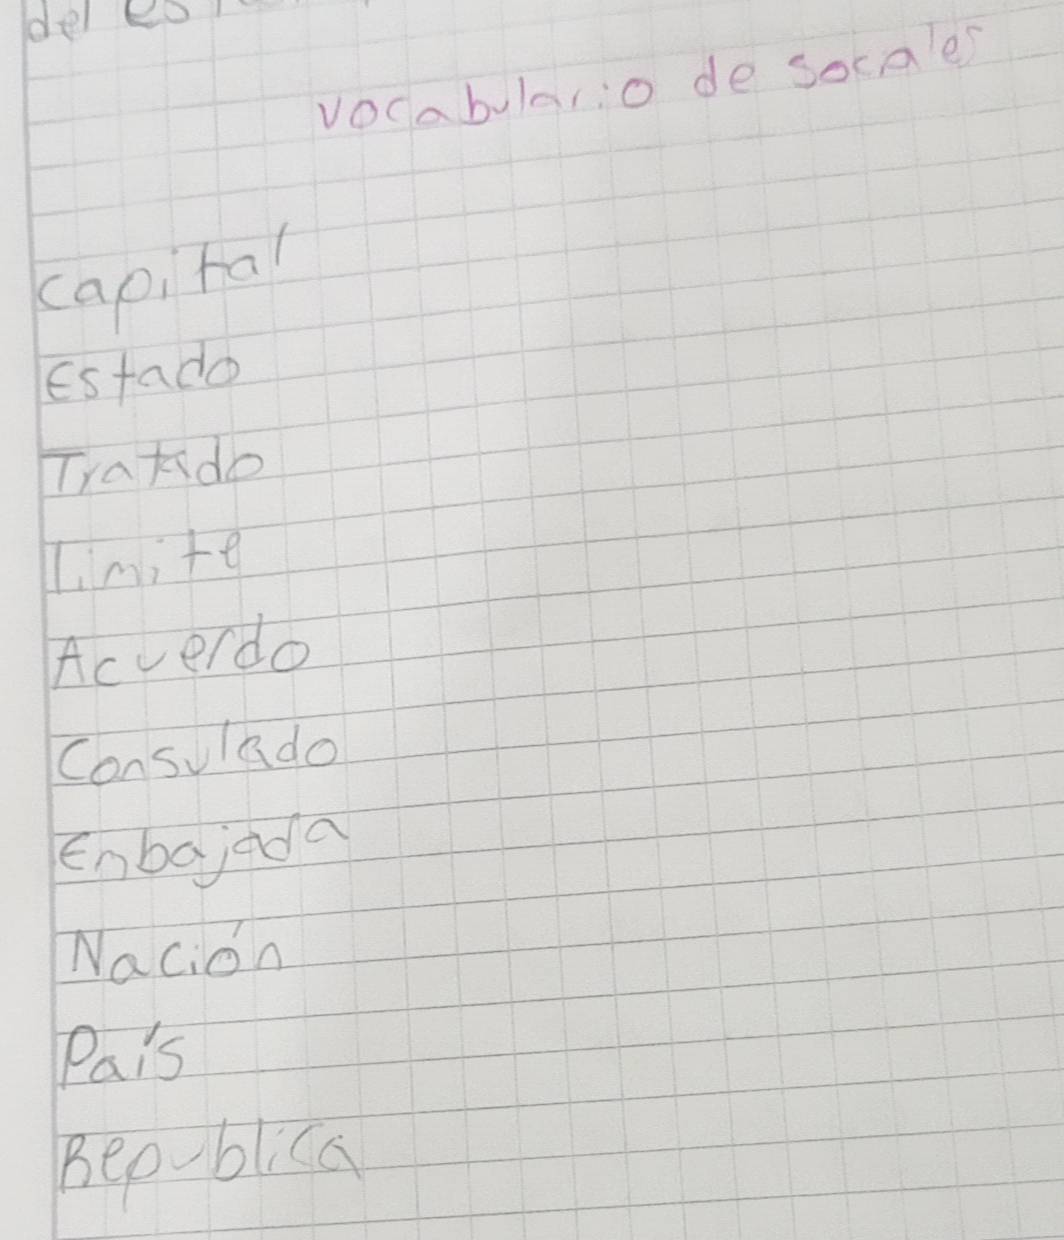 vocabulario de socales
capital
Estado
Tratado
Limite
Acuerdo
Consulado
Enbajada
Nación
País
Republica